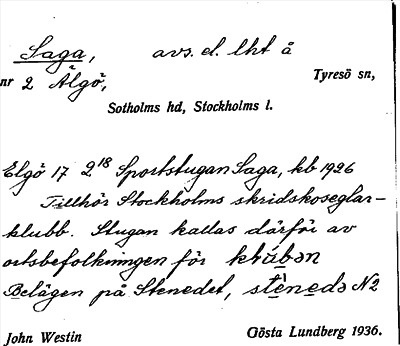 Saga, avs. el. lht å
nr 2 Älgö, Tyresö sn,
Sotholms hd, Stockholms l.
Elgö 17 2¹⁸ Sportstugan Saga, kb 1926
Tillhör Stockholms skridskoseglar-
klubb. Stugan kallas därför av
ortsbefolkningen för
Belägen på Stenedet,
John Westin Gösta Lundberg 1936.